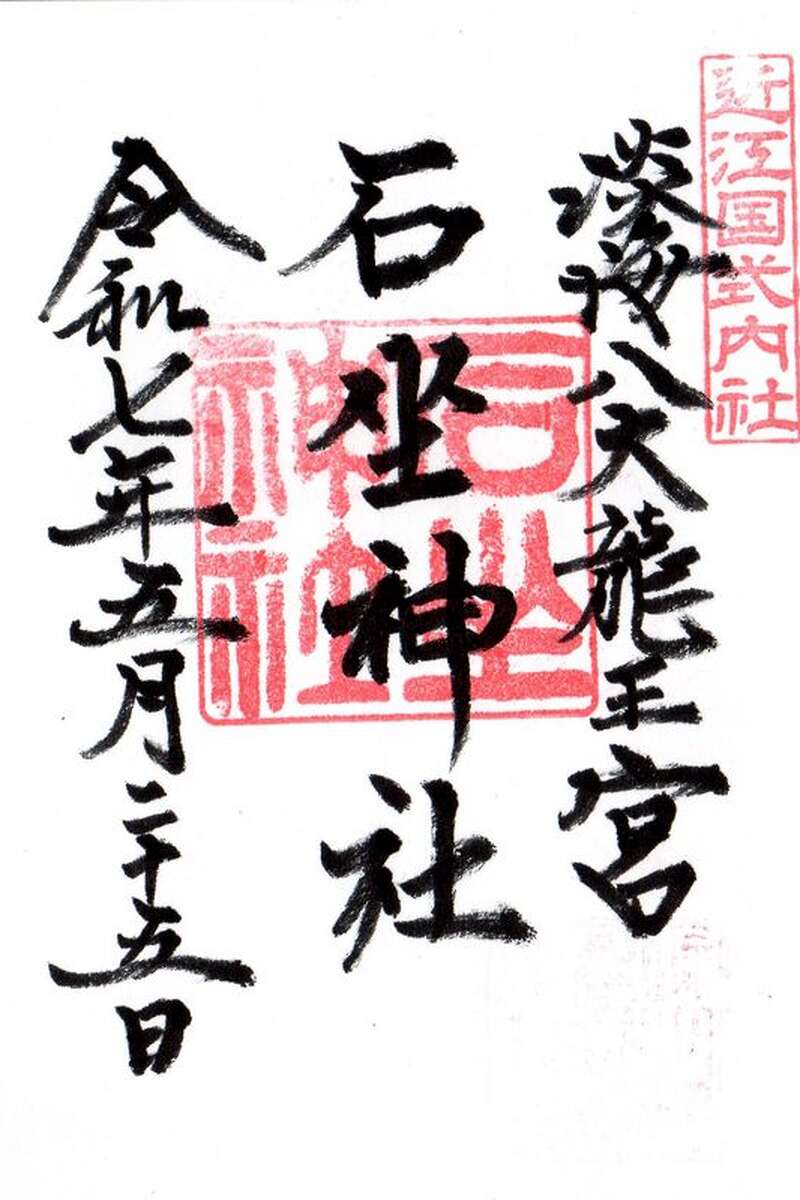 近江国式内社
淡海八大龍王宮
石坐神社
石坐神社
令和七年五月二十五日